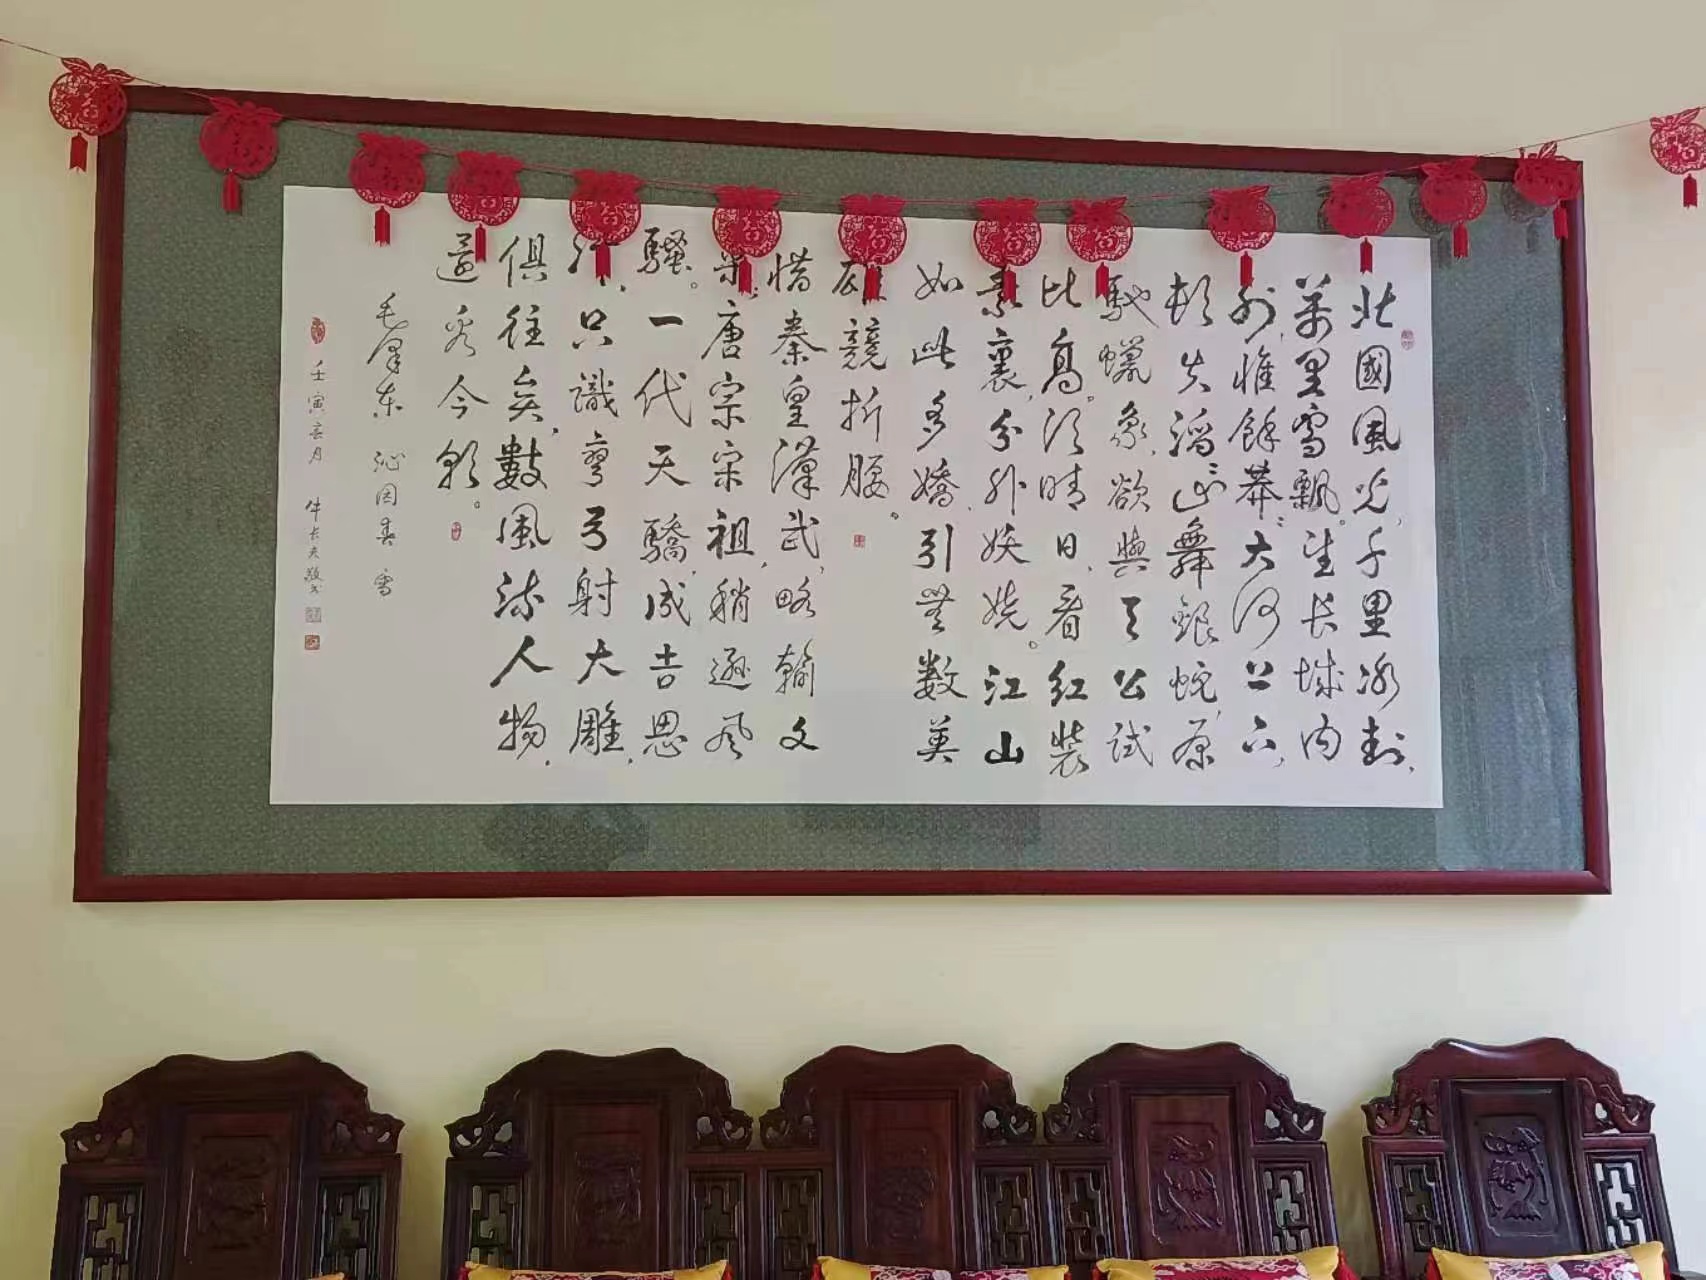 北國風光，千里冰封，
萬里雪飄。望长城内
外，惟餘莽莽；大河上下，
頓失滔滔。山舞銀蛇，原
馳蠟象，欲與天公試
比高。须晴日，看红裝
素裹，分外妖娆。江山
如此多嬌，引無数英
雄競折腰。
惜秦皇漢武，略輸文
采；唐宗宋祖，稍遜风
騷。一代天驕，成吉思
汗，只識彎弓射大雕，
俱往矣，數風流人物，
還看今朝。
毛泽东 沁园春 雪
壬寅春月 敬书